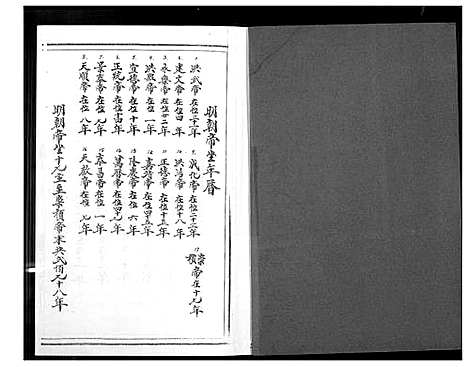 明朝帝坐年曆
洪武帝在位三十一年
建文帝在位四年
永樂帝在位廿二年
洪熙帝在位一年
宣德帝在位十年
正統帝在位十四年
景泰帝在位九年
天順帝在位八年
成化帝在位二十三年
洪治帝在位十八年
正德帝在位十五年
嘉靖帝在位四十五年
隆慶帝在位六年
萬曆帝在位四十九年
泰昌帝在位一年
天啟帝在位七年
崇禎帝在十九年
明朝帝坐十九年至崇禎帝本